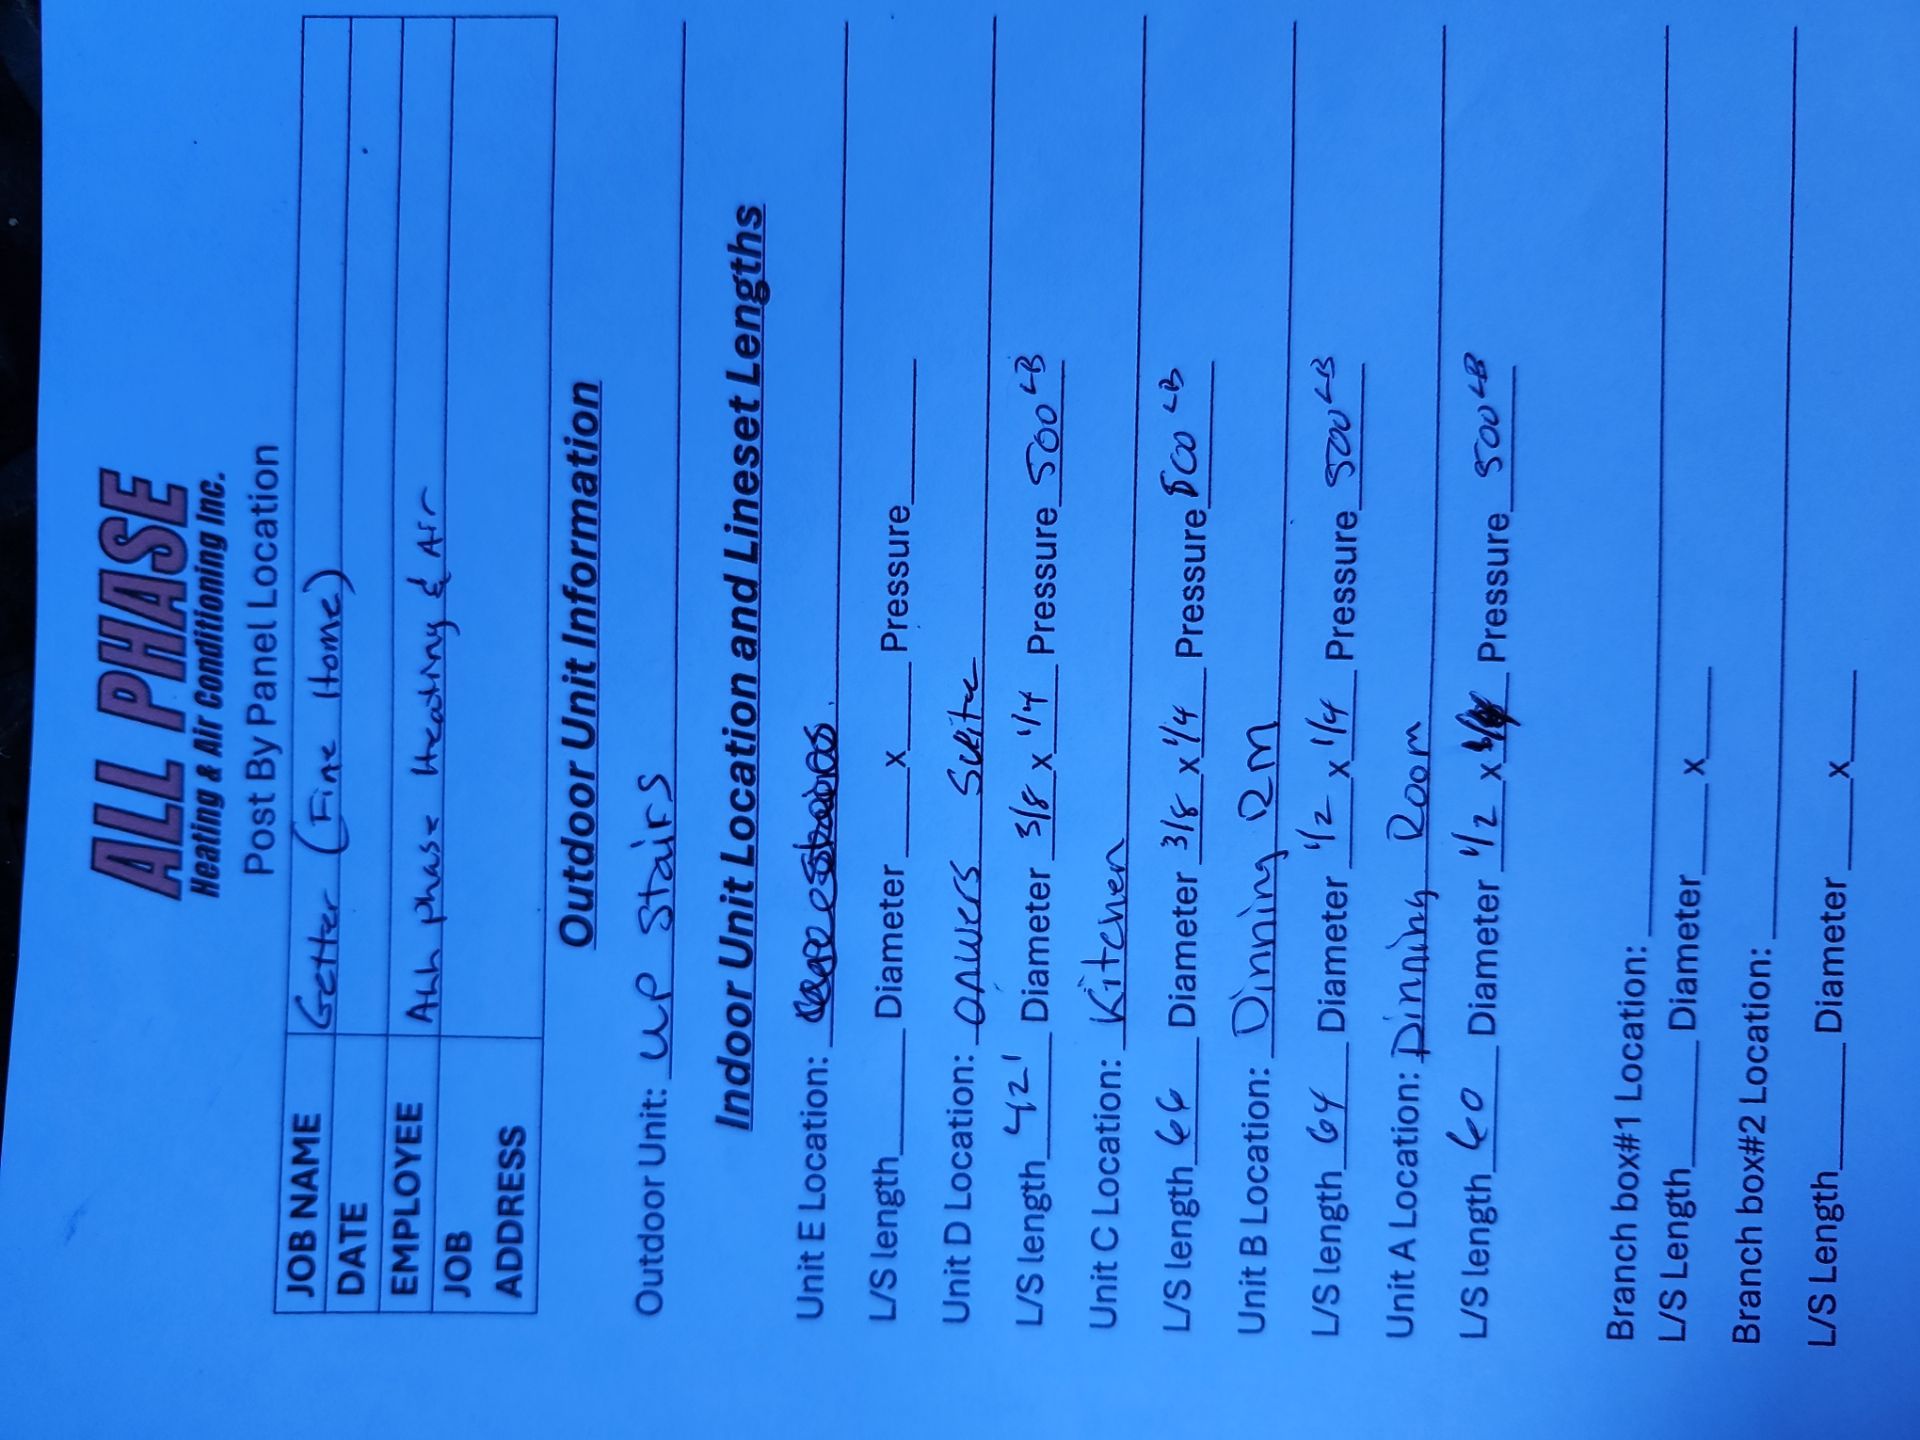 ALL PHASE
Heating & Air Conditioning Inc.
Post By Panel Location
JOB NAME Getter (Fine Home)
DATE
EMPLOYEE Ahh phase Heating & Air
JOB
ADDRESS
Outdoor Unit Information
Outdoor Unit: up stairs
Indoor Unit Location and Lineset Lengths
Unit E Location:
L/S length____ Diameter ____x____ Pressure____
Unit D Location: onwers Suite
L/S length 42' Diameter 3/8 x 1/4 Pressure 500 LB
Unit C Location: Kitchen
L/S length 66 Diameter 3/8 x 1/4 Pressure 500 LB
Unit B Location: Dinning Rm
L/S length 64 Diameter 1/2 x 1/4 Pressure 500 LB
Unit A Location: Dinning Room
L/S length 60 Diameter 1/2 x Pressure 500 LB
Branch box#1 Location:
L/S Length____ Diameter____x____
Branch box#2 Location:
L/S Length____ Diameter____x____